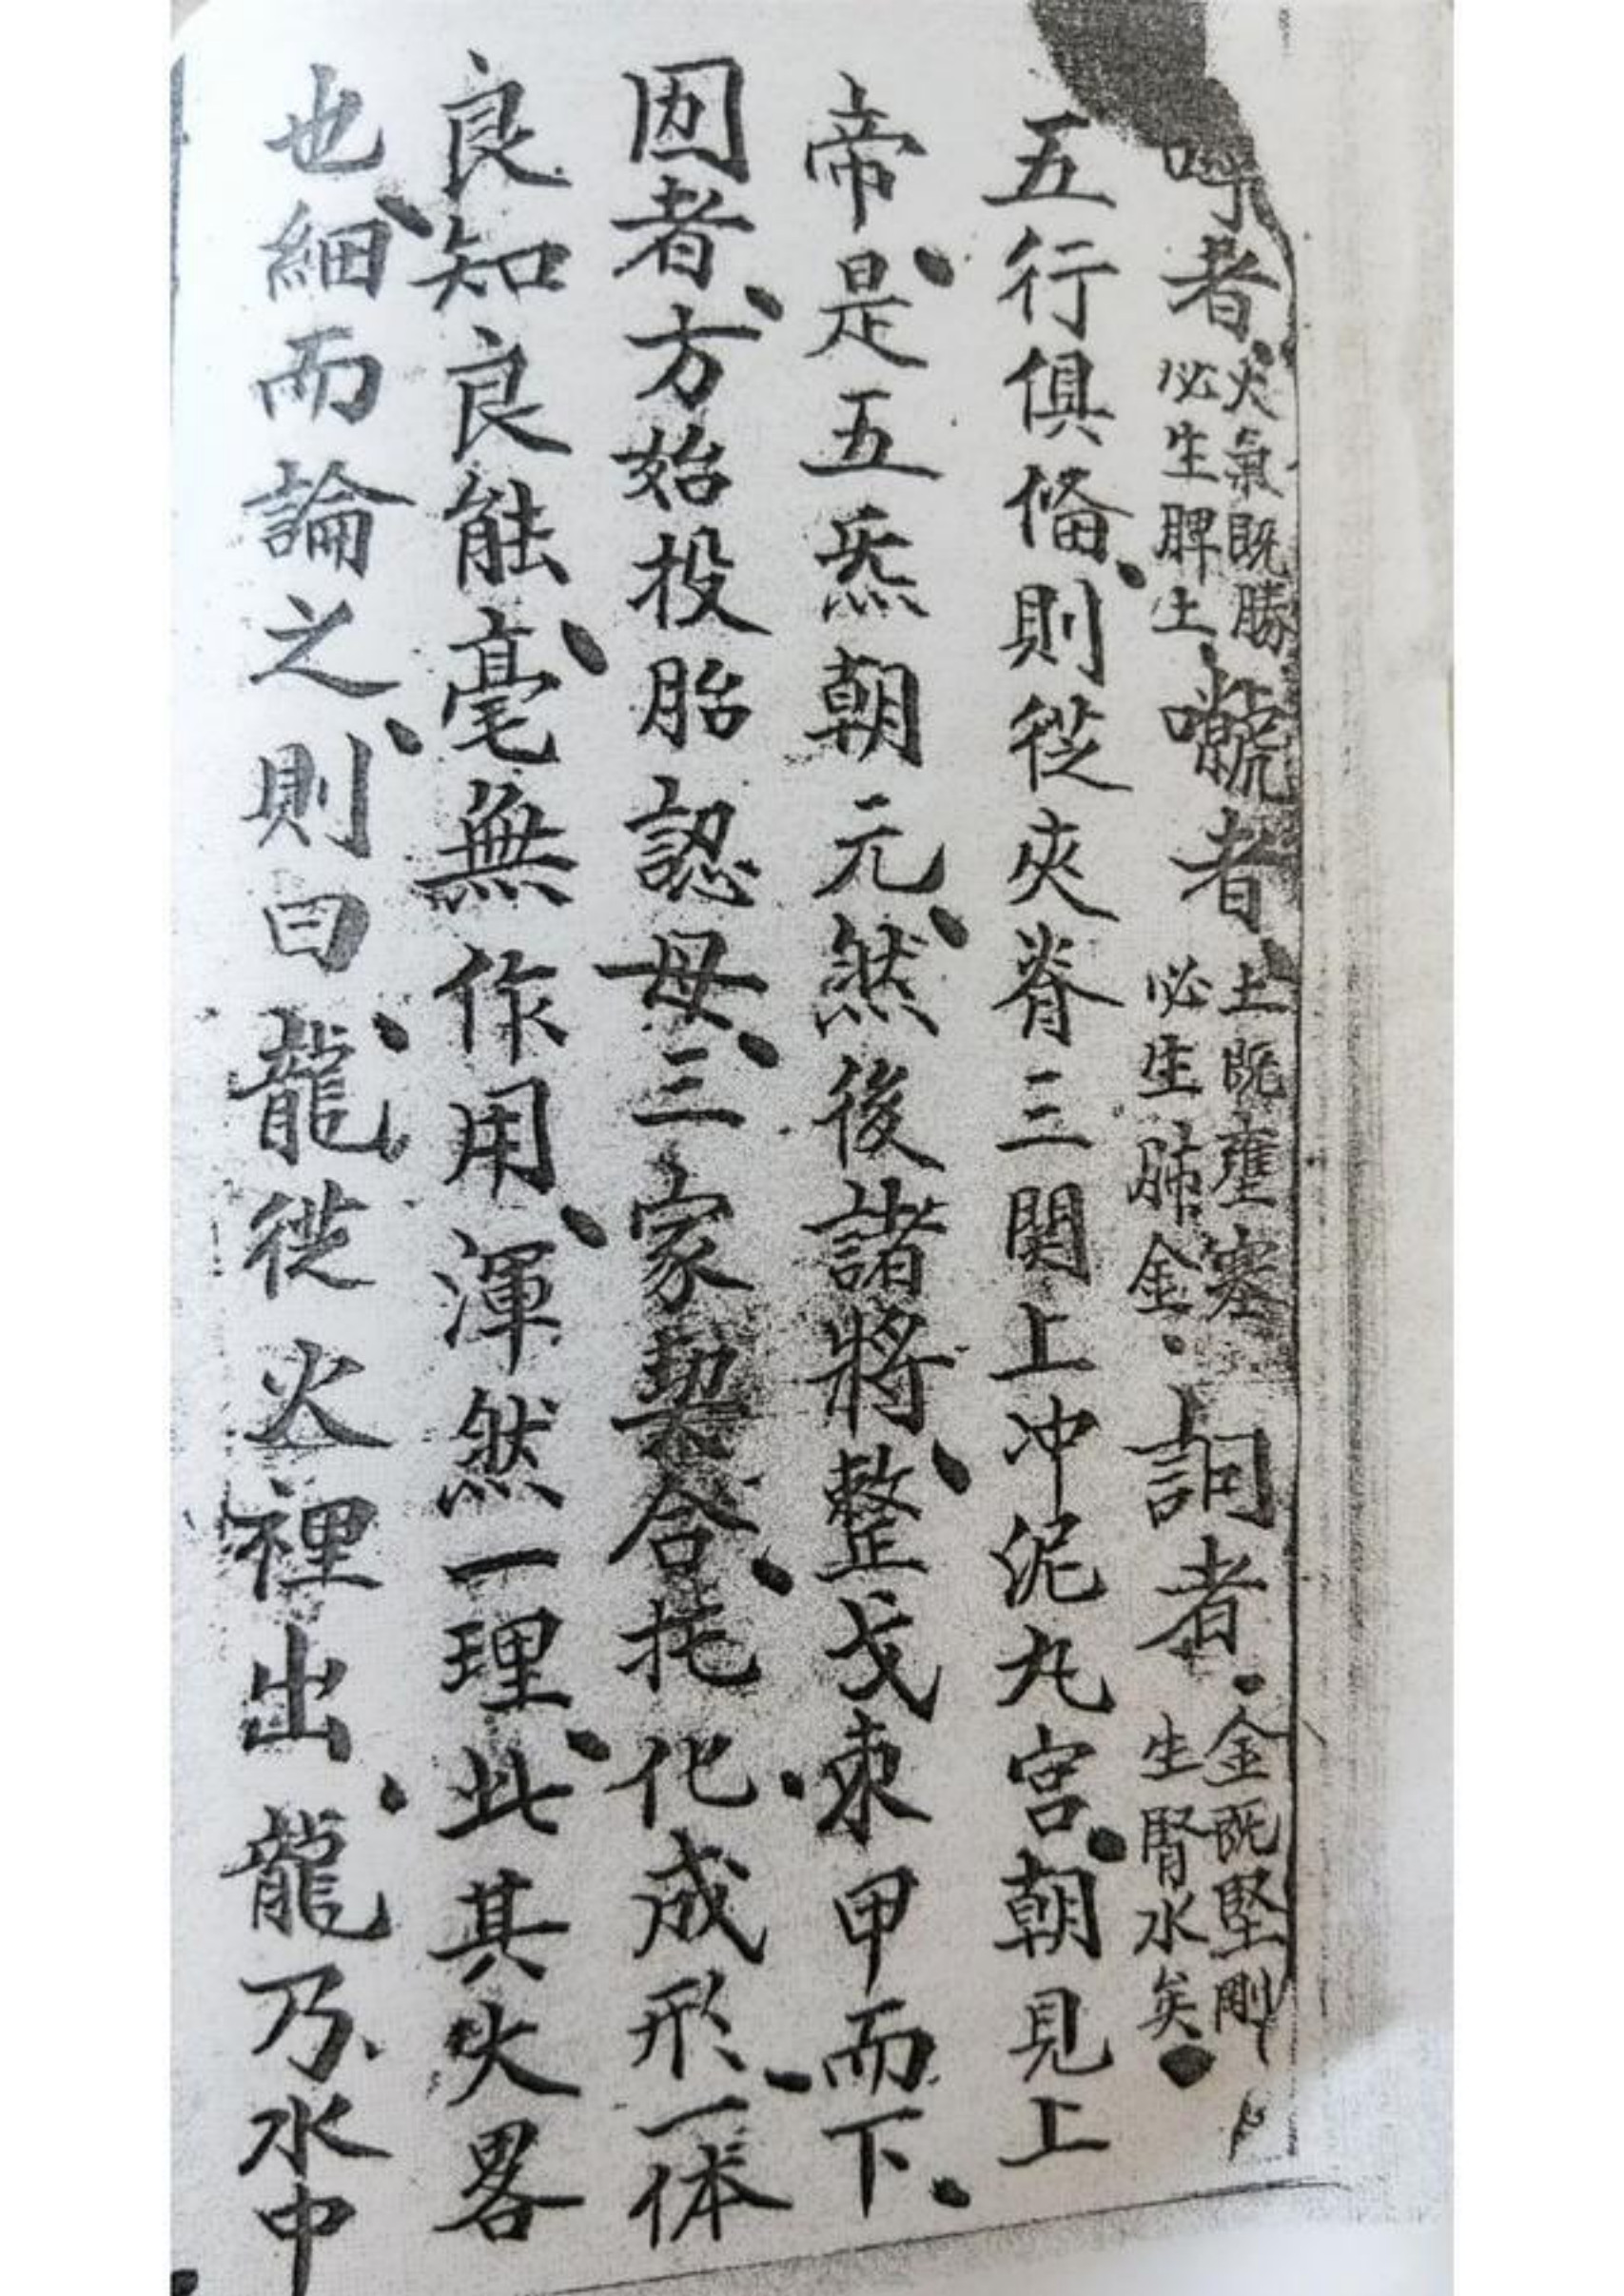 呼者火氣既勝必生脾土者土既壅塞必生肺金詞者金既堅剛生腎水矣
五行俱俻則從夾脊三関上冲泥丸宮朝見上
帝是五炁朝元然後諸將整戈束甲而下
囡者方始投胎認母三家契合托化成形一体
良知良能毫無作用渾然一理此其大畧
也細而論之則曰龍從火裡出龍乃水中